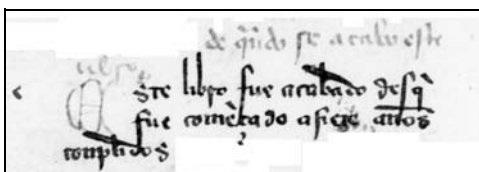 de qũdo se acabo este
Este libro fue acabado desq̃
fue comẽçado a siete años
conplidos